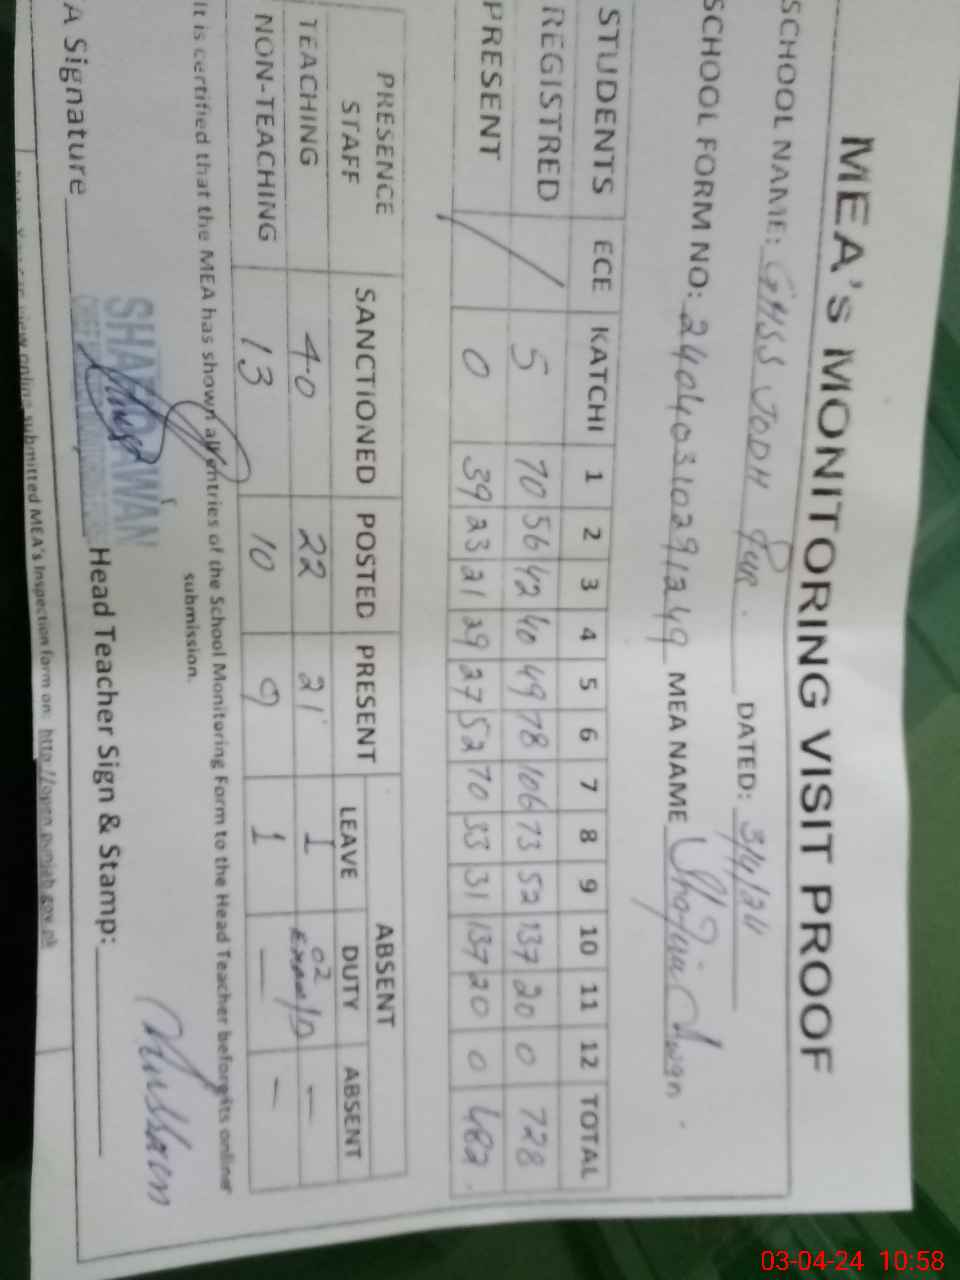 MEA's MONITORING VISIT PROOF
SCHOOL NAME: GHSS JODH Pur. DATED: 3/4/24
SCHOOL FORM NO: 24040310291249 MEA NAME Awan.
STUDENTS ECE KATCHI 1 2 3 4 5 6 7 8 9 10 11 12 TOTAL
REGISTRED / 5 70 56 42 40 49 78 106 73 52 137 20 0 728
PRESENT 0 39 23 21 29 27 52 70 33 31 137 20 0 482.
PRESENCE STAFF SANCTIONED POSTED PRESENT ABSENT
LEAVE DUTY ABSENT
TEACHING 40 22 21 1 02 —
NON-TEACHING 13 10 9 1 — —
It is certified that the MEA has shown all entries of the School Monitoring Form to the Head Teacher before its online
submission.
A Signature Head Teacher Sign & Stamp:
AWAN
view online submitted MEA's Inspection form on: http://open.punjab.gov.pk
03-04-24 10:58